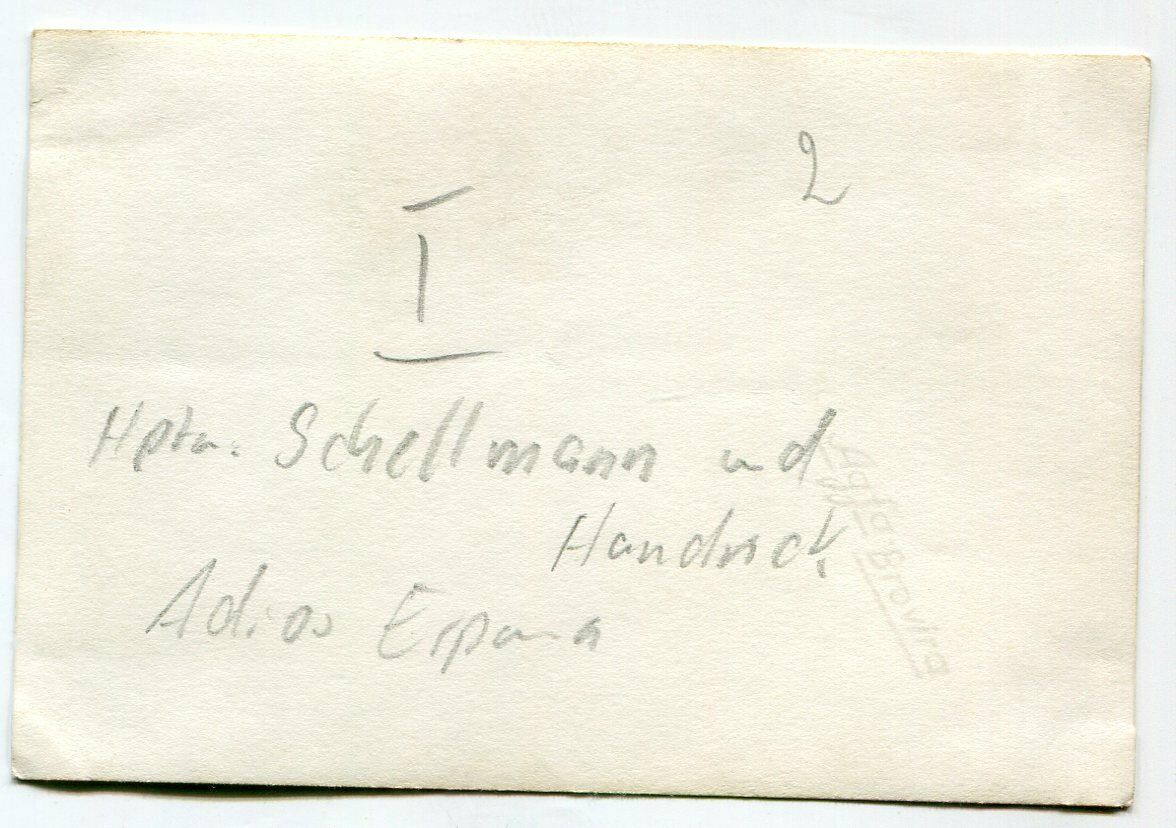 2
I
Hptm. Schellmann und
Handrick
Adios Espana
Agfa-Brovira